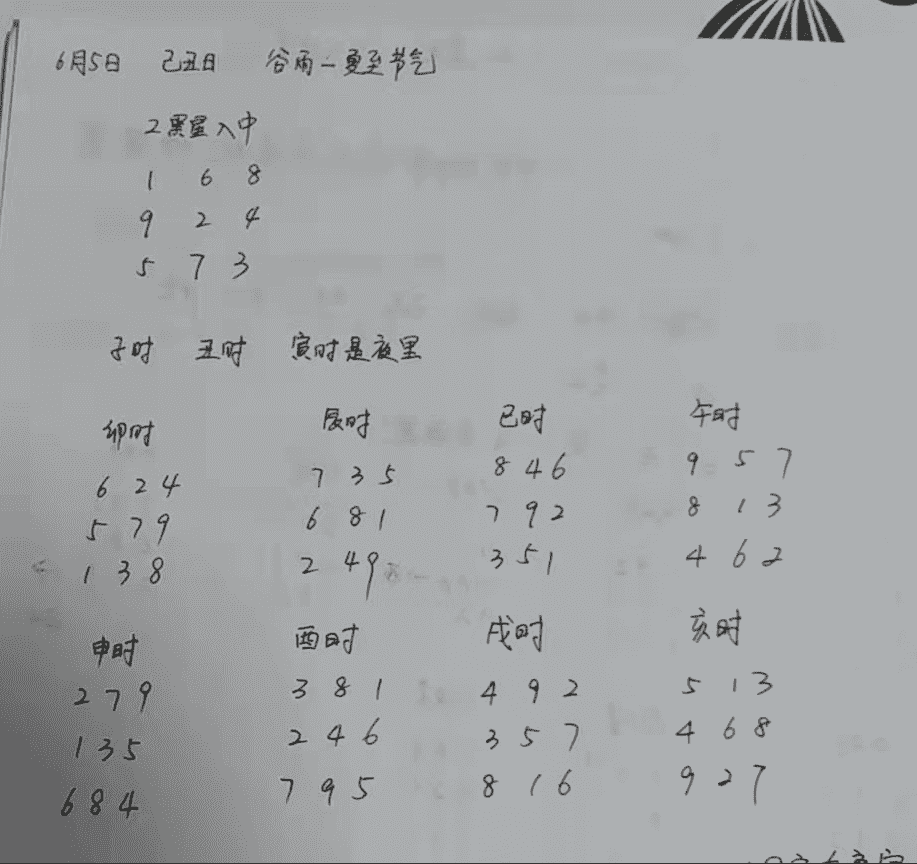 6月5日 己丑日 谷雨一夏至节气
2黑星入中
1 6 8
9 2 4
5 7 3
子时 丑时 寅时是夜里
卯时 辰时 巳时 午时
6 2 4 7 3 5 8 4 6 9 5 7
5 7 9 6 8 1 7 9 2 8 1 3
1 3 8 2 4 9 3 5 1 4 6 2
申时 酉时 戌时 亥时
2 7 9 3 8 1 4 9 2 5 1 3
1 3 5 2 4 6 3 5 7 4 6 8
6 8 4 7 9 5 8 1 6 9 2 7